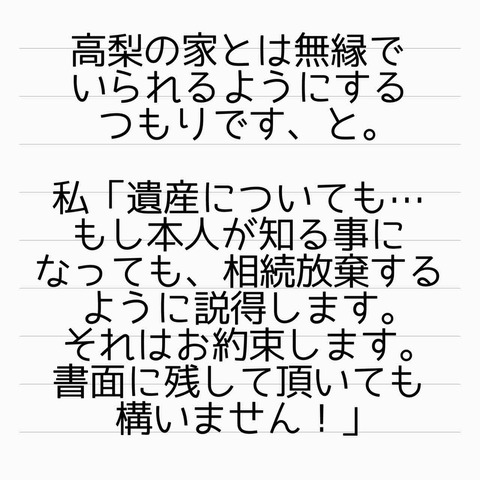 高梨の家とは無縁で
いられるようにする
つもりです、と。
私「遺産についても…
もし本人が知る事に
なっても、相続放棄する
ように説得します。
それはお約束します。
書面に残して頂いても
構いません！」